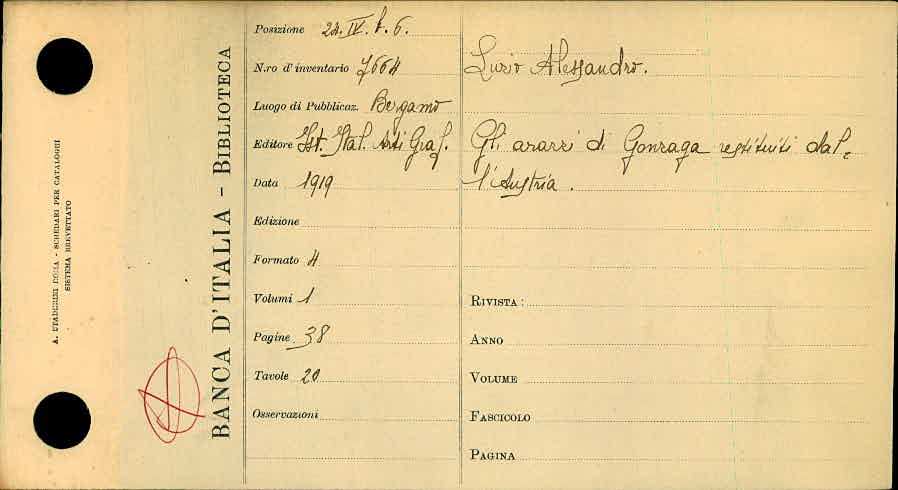 A. STADERINI ROMA - SCHEDARI PER CATALOGHI
SISTEMA BREVETTATO
BANCA D'ITALIA - BIBLIOTECA
Posizione 22. IV. f. 6.
N.ro d'inventario 7664
Luogo di Pubblicaz. Bergamo
Editore Ist. Ital. Arti Graf.
Data 1919
Edizione
Formato 4
Volumi 1
Pagine 38
Tavole 20
Osservazioni
Luzio Alessandro.
Gli arazzi di Gonzaga restituiti dal-
l'Austria.
RIVISTA:
ANNO
VOLUME
FASCICOLO
PAGINA